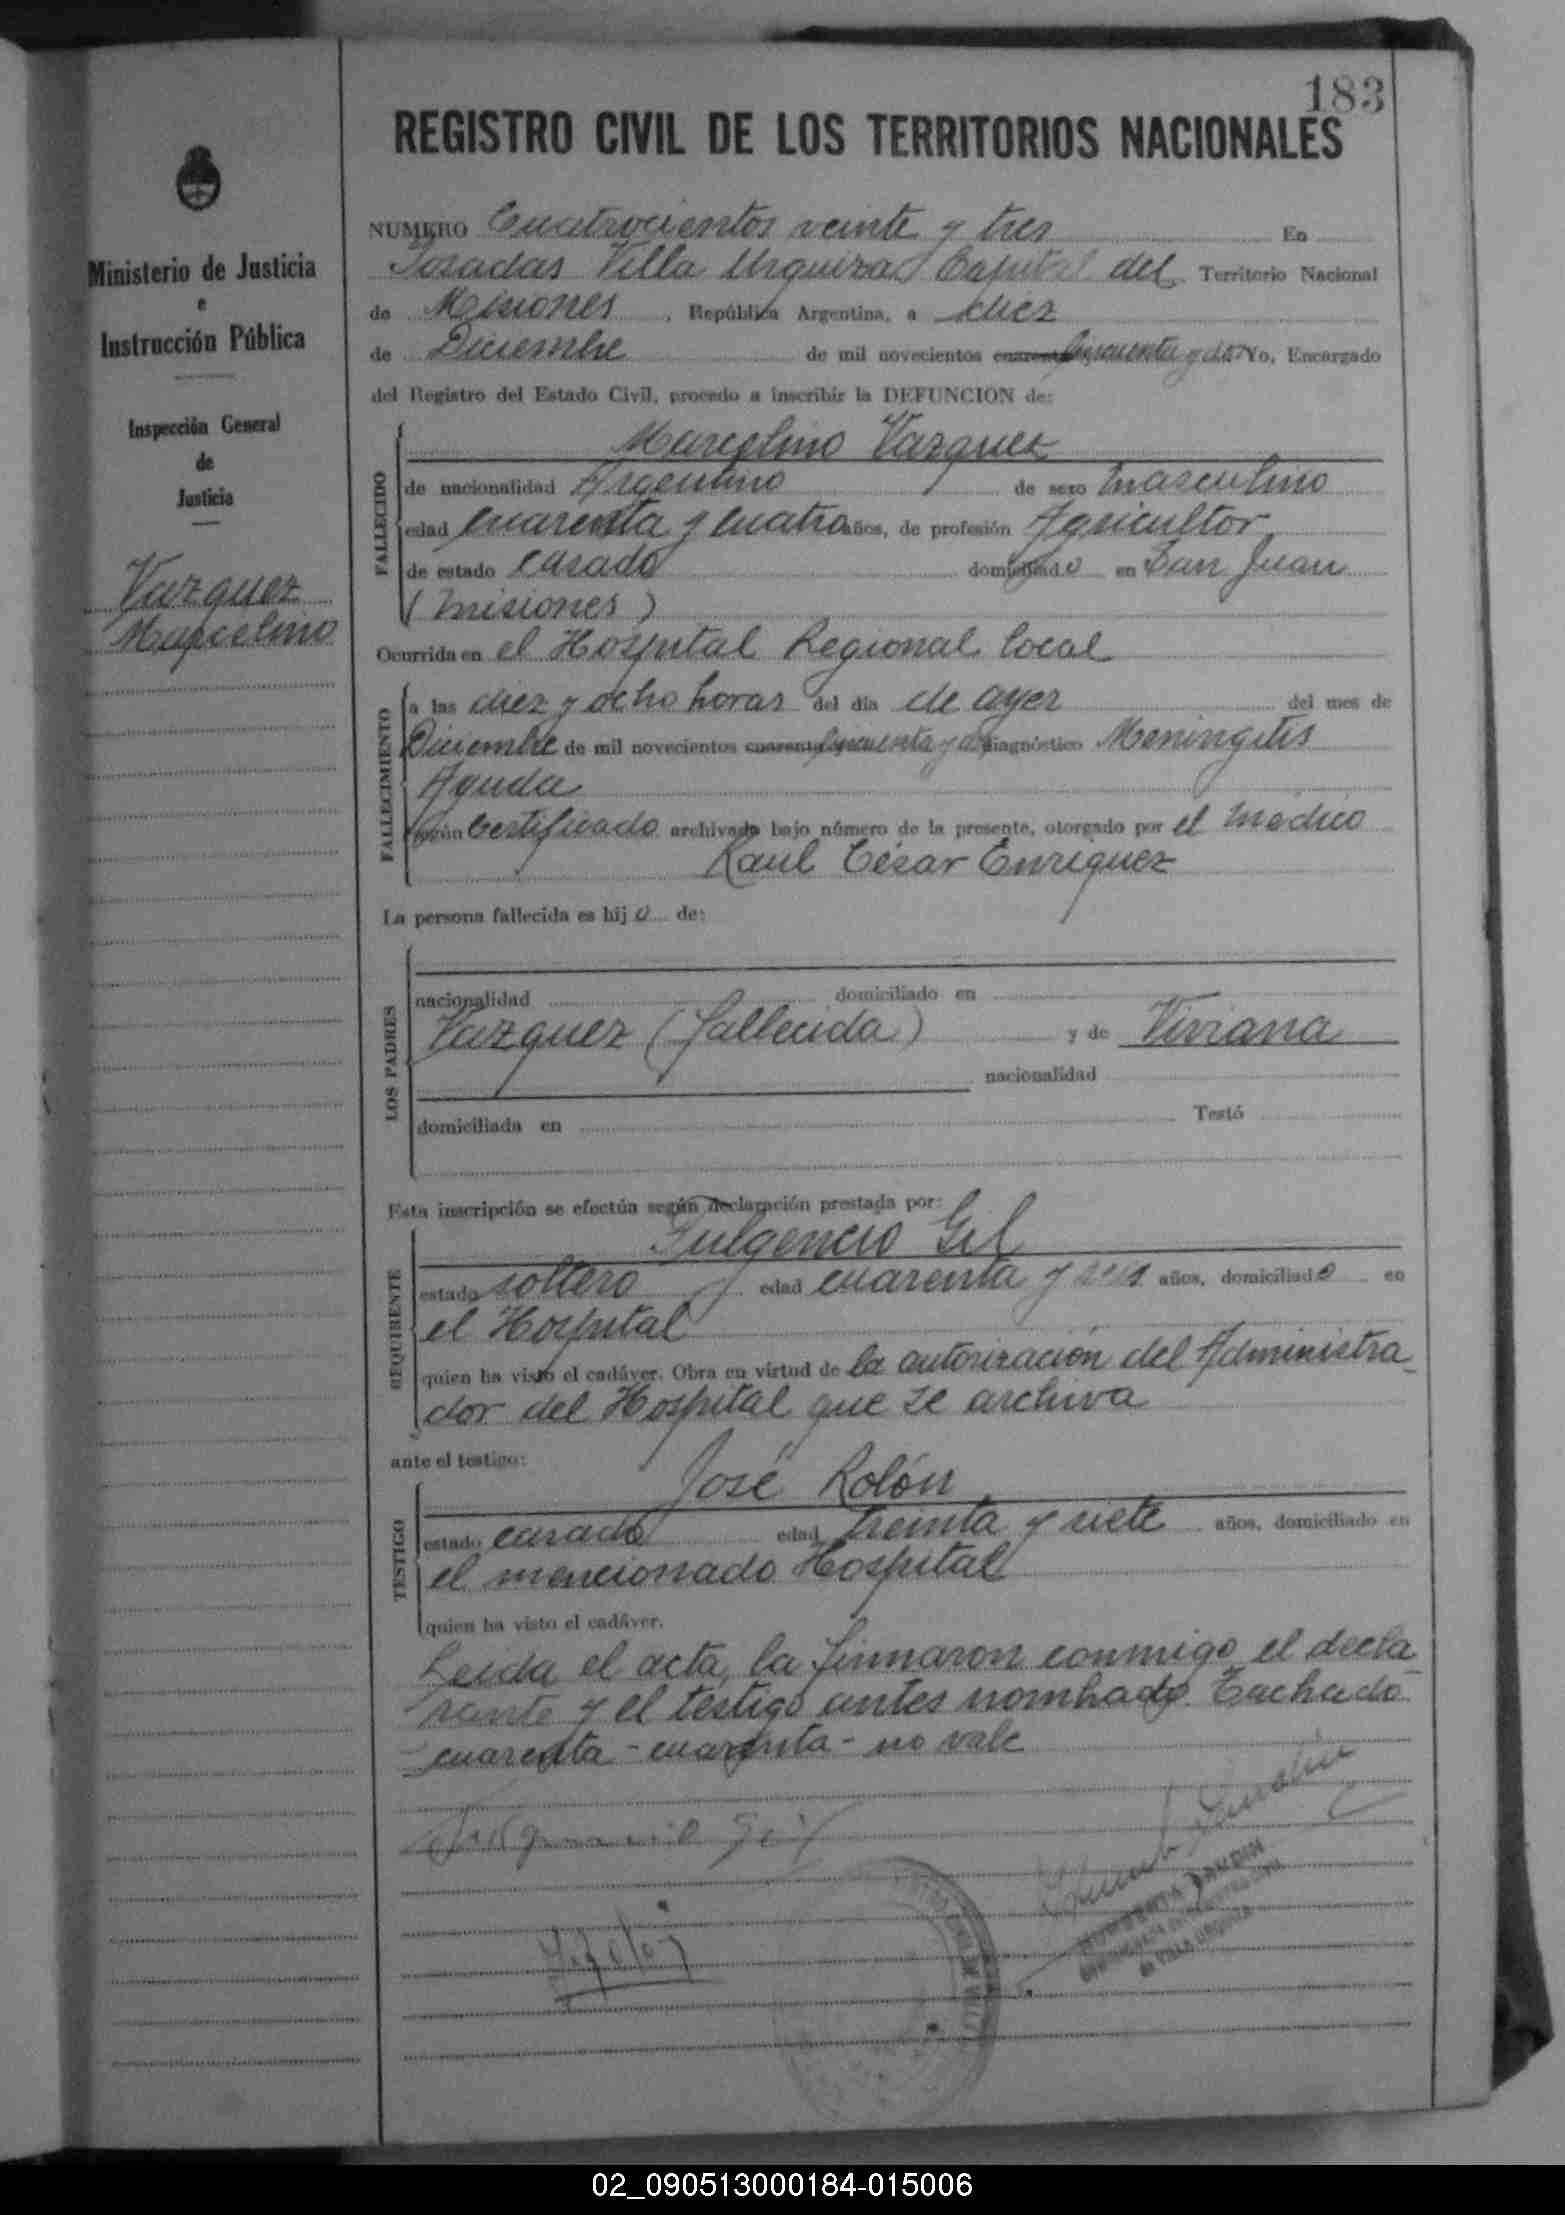 183
REGISTRO CIVIL DE LOS TERRITORIOS NACIONALES
Ministerio de Justicia
e
Instrucción Pública
Inspección General
de
Justicia
Vazquez
Marcelino
NUMERO Cuatrocientos veinte y tres En
Posadas Villa Urquiza Capital del Territorio Nacional
de Misiones, República Argentina, a diez
de Diciembre de mil novecientos cuarenta cincuenta y dos Yo, Encargado
del Registro del Estado Civil, procedo a inscribir la DEFUNCION de:
FALLECIDO
Marcelino Vazquez
de nacionalidad Argentino de sexo masculino
edad cuarenta y cuatro años, de profesión Agricultor
de estado casado domiciliado en San Juan
(Misiones)
Ocurrida en el Hospital Regional local
FALLECIMIENTO
a las diez y ocho horas del día de ayer del mes de
Diciembre de mil novecientos cuarenta cincuenta y dos diagnóstico Meningitis
Aguda
según Certificado archivado bajo número de la presente, otorgado por el médico
Raul César Enriquez
La persona fallecida es hijo de:
LOS PADRES
nacionalidad domiciliado en
Vazquez (fallecida) y de Viviana
nacionalidad
domiciliada en Testó
Esta inscripción se efectúa según declaración prestada por:
REQUIRENTE
Fulgencio Gil
estado soltero edad cuarenta y seis años, domiciliado en
el Hospital
quien ha visto el cadáver. Obra en virtud de la autorización del Administra-
dor del Hospital que se archiva
ante el testigo:
TESTIGO
José Rolón
estado casado edad treinta y siete años, domiciliado en
el mencionado Hospital
quien ha visto el cadáver.
Leida el acta, la firmaron conmigo el decla-
rante y el testigo antes nombrado. Tachado
-cuarenta - cuarenta - no vale
Fulgencio Gil
02_090513000184-015006